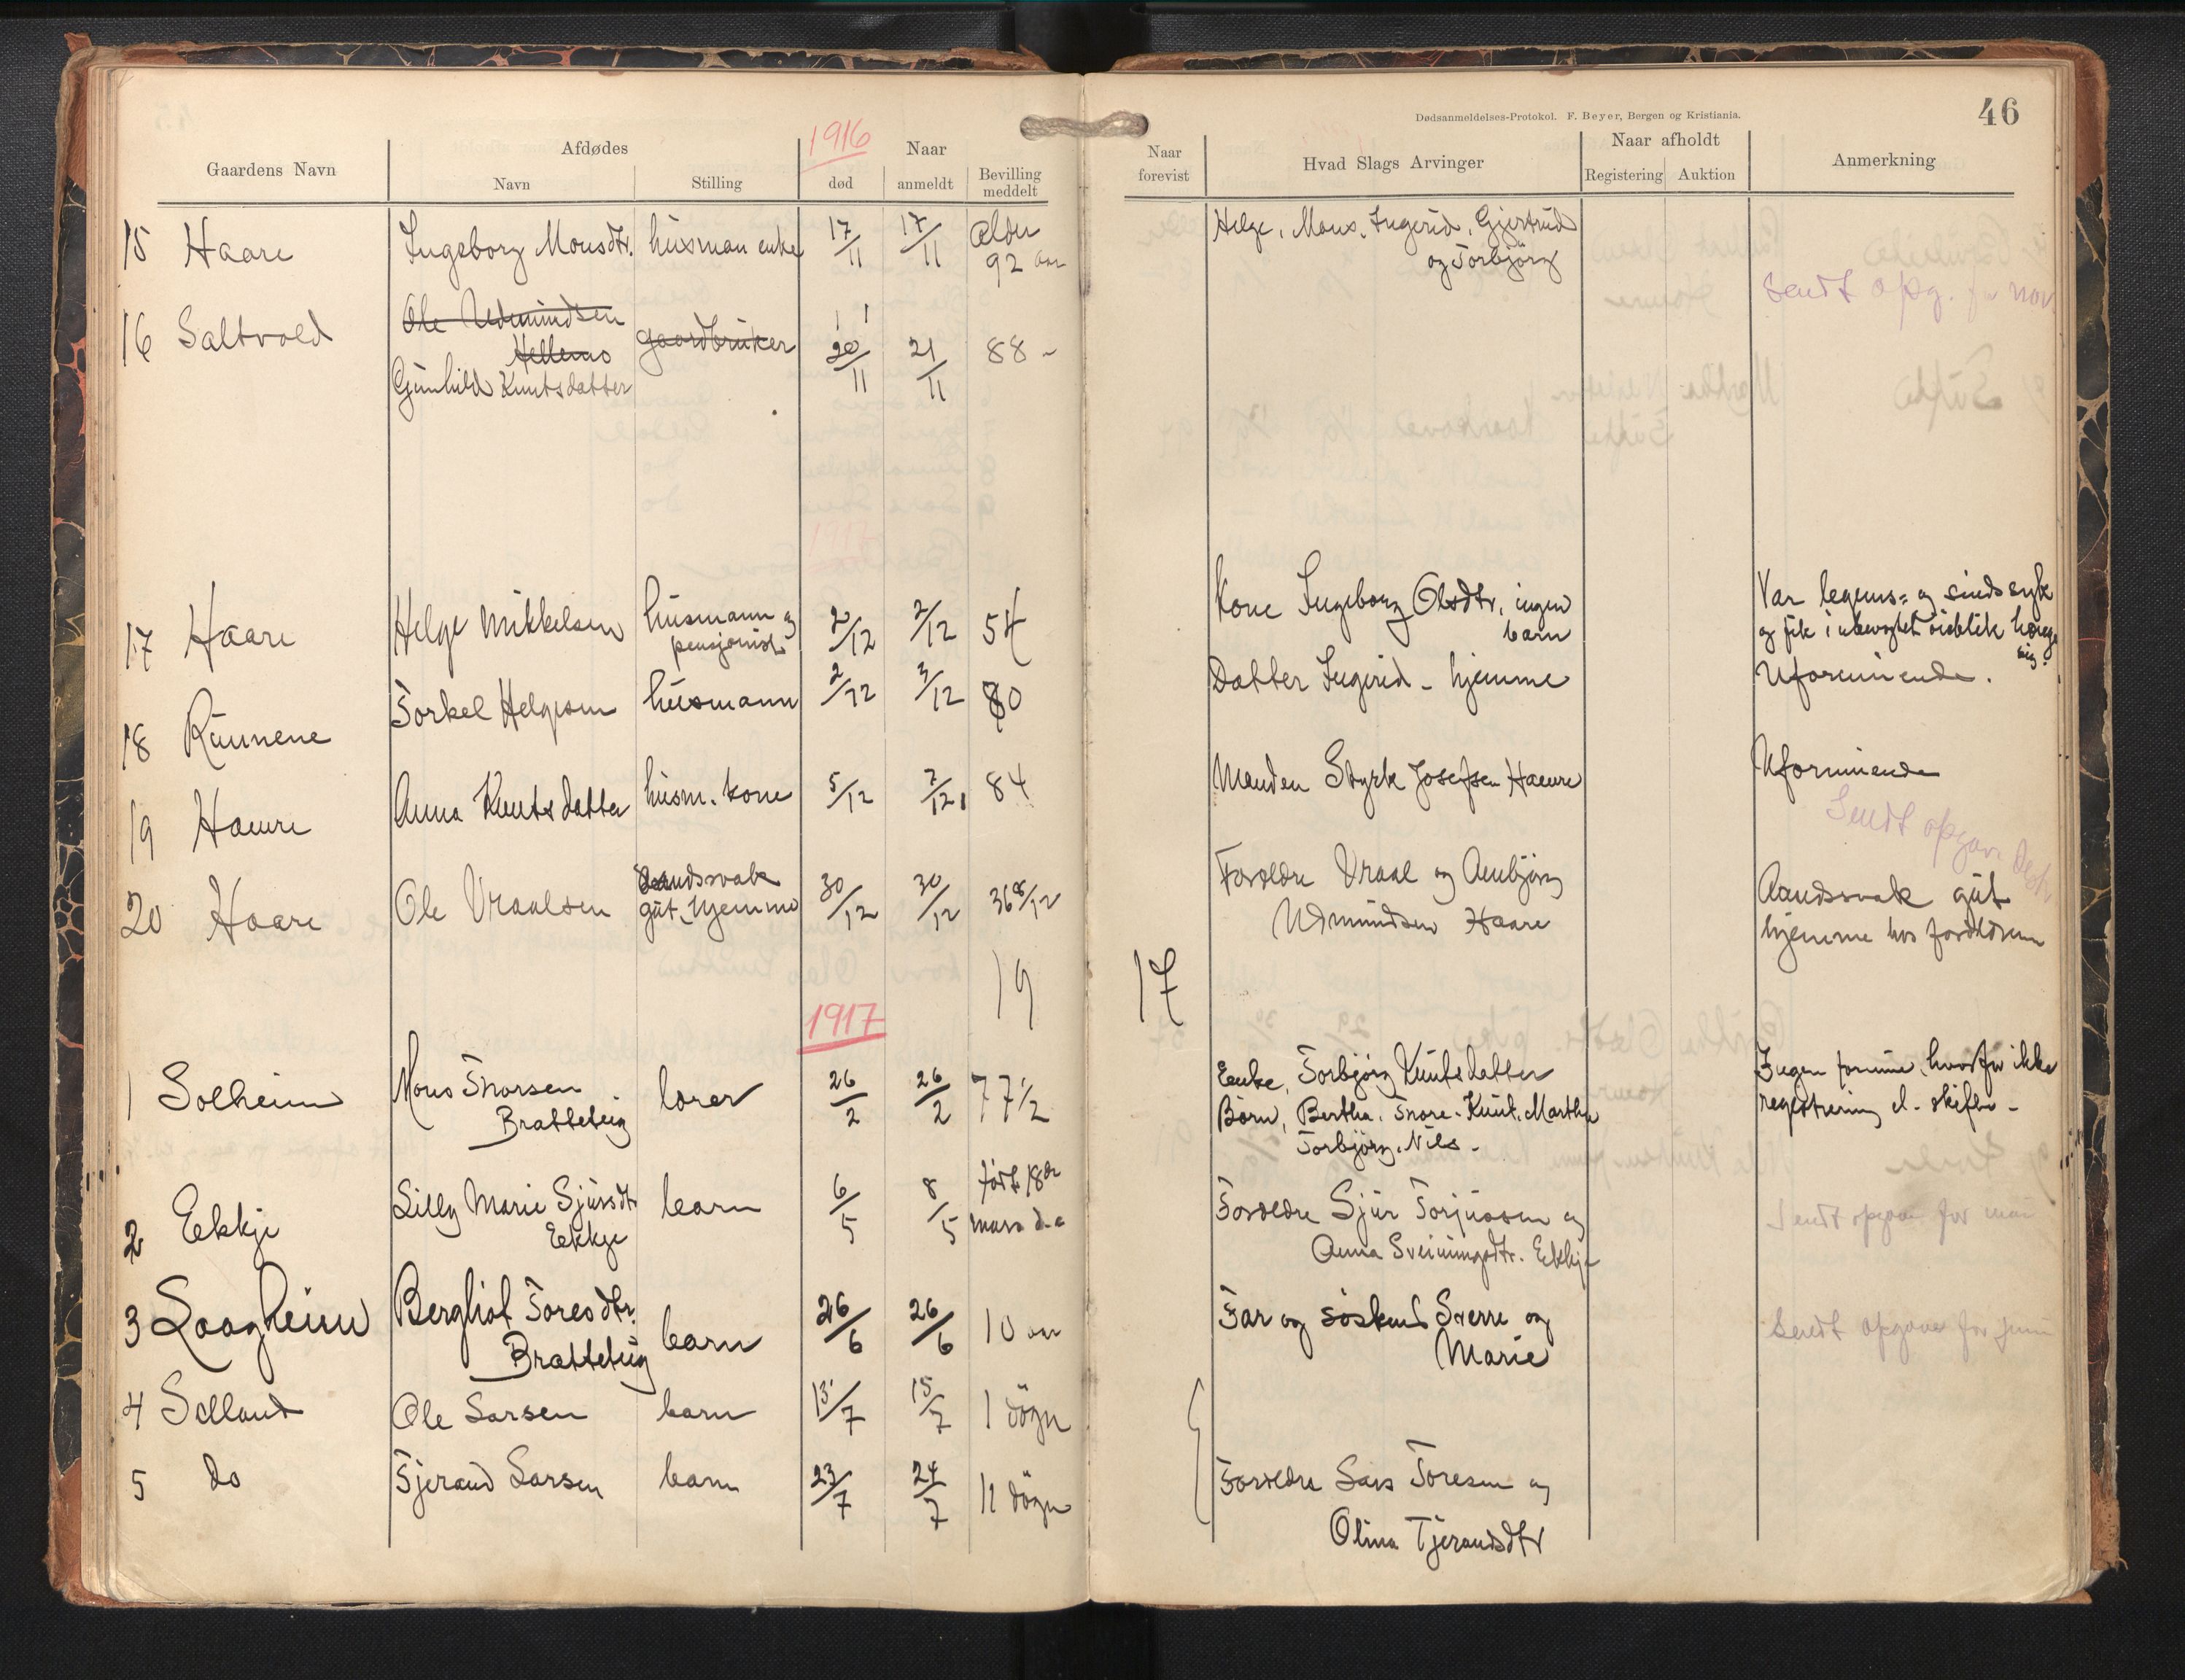 46
Dødsanmeldelses-Protokol. F. Beyer, Bergen og Kristiania.
Gaardens Navn
Afdødes
Navn
Stilling
1916
Naar
død
anmeldt
Bevilling meddelt
Naar forevist
Hvad Slags Arvinger
Naar afholdt
Registering
Auktion
Anmerkning
15 Haare Ingeborg Monsdtr. husman enke 17/11 17/11 Alder 92 aar Helge, Mons, Ingerid, Gjertrud
og Torbjörg
Sendt opg. for nov
16 Saltvold Ole Udmundsen
Hellemo gaardbruker 20/11 21/11 88 -
Gunhild Knutsdatter
17 Haare Helge Mikkelsen husmann og
pensjonist 2/12 2/12 54 Kone Ingeborg Olsdtr, ingen
barn
Var legems= og sindssyk
og fik i ubevogtet øieblik hænge
sig.
18 Runnene Torkel Helgesen husmann 2/12 3/12 80 Datter Ingerid - hjemme Uformuende.
19 Haure Anna Knutsdatter husm. kone 5/12 7/12 84 Manden Styrk Josefsen Haure Uformuende
Sendt opgave Dcbr
20 Haare Ole Vraalsen Aandssvak
gut, hjemme 30/12 30/12 36 8/12 Forældre Vraal og Aunbjörg
Udmundsen Haare
Aandssvak gut
hjemme hos forældrene
19
17
1917
1 Solheim Mons Thorsen
Bratteteig lærer 26/2 26/2 77 1/2 Enke, Torbjörg Knutsdatter
Börn, Bertha. Thore. Knut. Martha
Torbjörg. Nils -
Ingen formue, hvorfor ikke
registrering el. skifte -
2 Ekkje Lilly Marie Sjursdtr
Ekkje barn 6/5 8/5 født 18de
mars d.a Forældre Sjur Torjussen og
Anna Sveinungsdtr. Ekkje
Sendt opgave for mai
3 Laagheim Bergliot Toresdtr.
Bratteteig barn 26/6 26/6 10 aar Far og søskend Sverre og
Marie
Sendt opgave for juni
4 Selland Ole Larsen barn 13/7 15/7 1 døgn
5 do Tjerand Larsen barn 23/7 24/7 11 døgn Forældre Lars Toresen og
Olina Tjerandsdtr